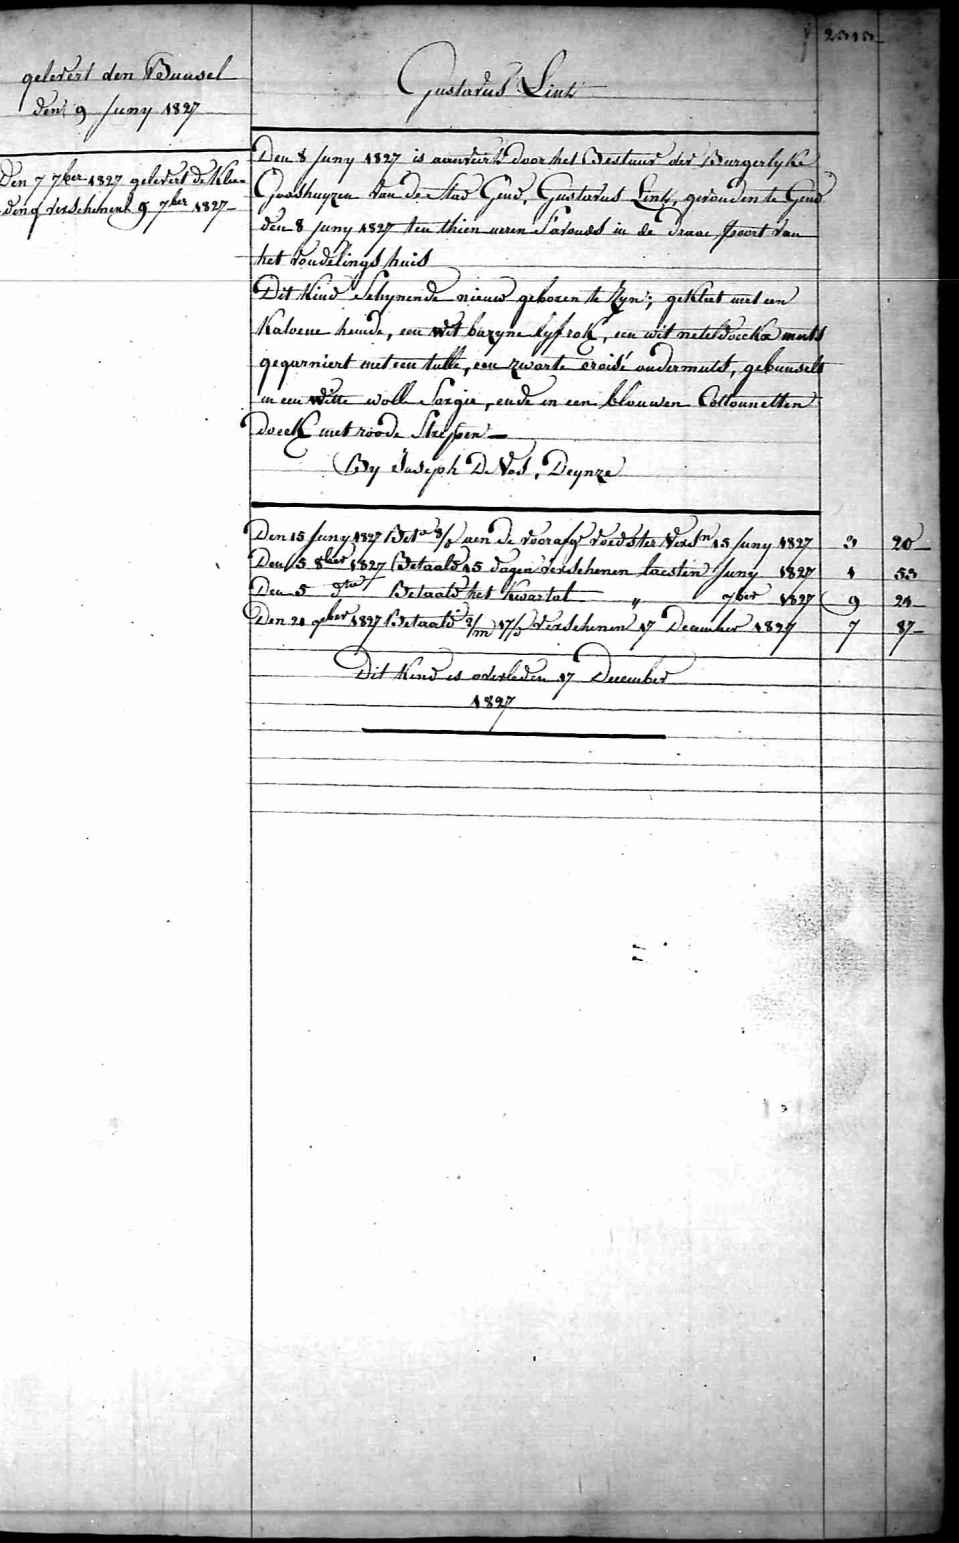 gelevert den Bunsel
den 9 Juny 1827
Den 7 7ber 1827 gelevert de Klee-
ding verschenen 9 7ber 1827
Gustavus Link
Den 8 Juny 1827 is aenveird door het Bestuur der Burgerlyke
Godshuyzen van de Stad Gend, Gustavus Link, gevonden te Gend
den 8 Juny 1827 ten thien ueren s'avonds in de draae poort van
het vondelings huis
Dit Kind Schynende nieuw geboren te zyn; gekleet met een
Katoene hemde, een wit bazyne lyfrok, een wit neteldoeckx muts
gegarniert met een tulle, een zwarte croisé ondermuts, gebunselt
in een witte wolle Sargie, ende in een blouwen Cottonnetten
doeck met roode Strepen
By Joseph De Vos, Deynze
Den 15 Juny 1827 Bet. aen de voorafg voedster Versn 15 Juny 1827 3 20
Den 5 8ber 1827 Betaald 15 dagen verschenen laesten Juny 1827 1 53
Den 5 dto Betaald het Kwartal " 7ber 1827 9 21
Den 21 9ber 1827 Betaald 2/m 17/d Verschenen 17 December 1827 7 87
Dit Kind is overleden 17 December
1827